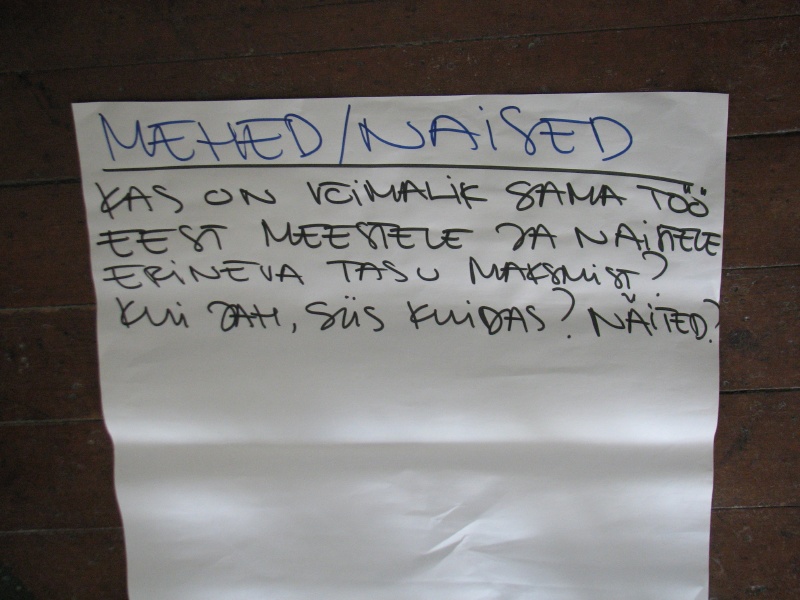 MEHED/NAISED
KAS ON VÕIMALIK SAMA TÖÖ
EEST MEESTELE JA NAISTELE
ERINEVA TASU MAKSMIST?
KUI JAH, SIIS KUIDAS? NÄITED?